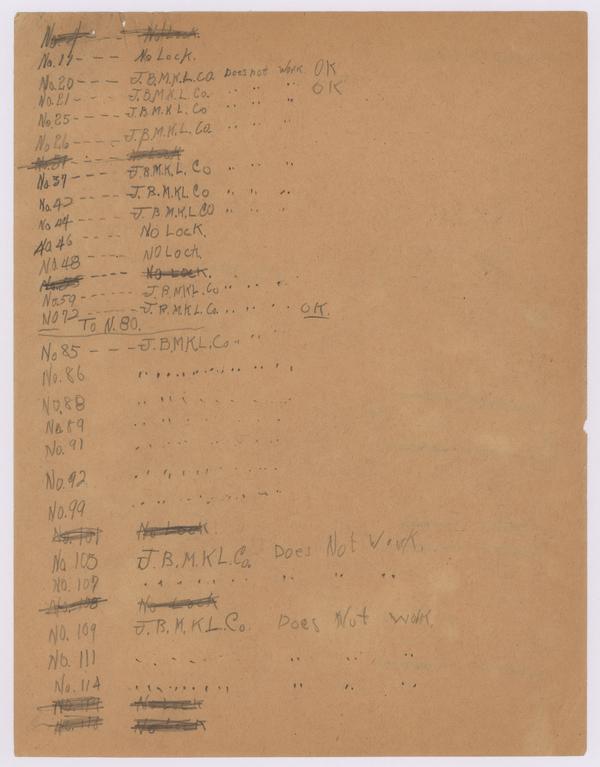 No Lock.
No. 17 - - - - No Lock.
No. 20 - - - - J.B.M.K.L.CO Does not work OK
No. 21 - - - - J.B.M.K.L. Co. " " " OK
No. 25 - - - - J.B.M.K.L. Co " " "
No. 26 - - - - J.B.M.K.L. Co. " " "
No. 37 - - - - No Lock
No. 37 - - - - J.B.M.K.L. Co " " "
No. 42 - - - - J.B.M.KL. Co " " "
No. 44 - - - - J.B.M.K.L CO " " "
No. 46 - - - - NO LOCK.
No. 48 - - - - NO LOCK.
- - - - No Lock.
No. 59 - - - - J.B.MKL. Co " " "
NO 72 - - - - J.B.M.K.L. Co. " " " OK.
To N. 80.
No 85 - - - J.B.MKL. Co " "
No. 86 " " " " " " " " "
No. 88 " " " " " " " " "
No. 89 " " " " " " " " "
No. 91 " " " " " " " " "
No. 92 " " " " " " " " "
No. 99 " " " " " " " " "
No. 101 No Lock
No 105 J.B.M.K.L. Co. Does Not Work.
No. 107 " " " " " " " " "
No. 108 No Lock
No. 109 J.B.M.K.L. Co. Does Not Work.
No. 111 " " " " " " " "
No. 114 " " " " " " " " " "
No Lock
No Lock